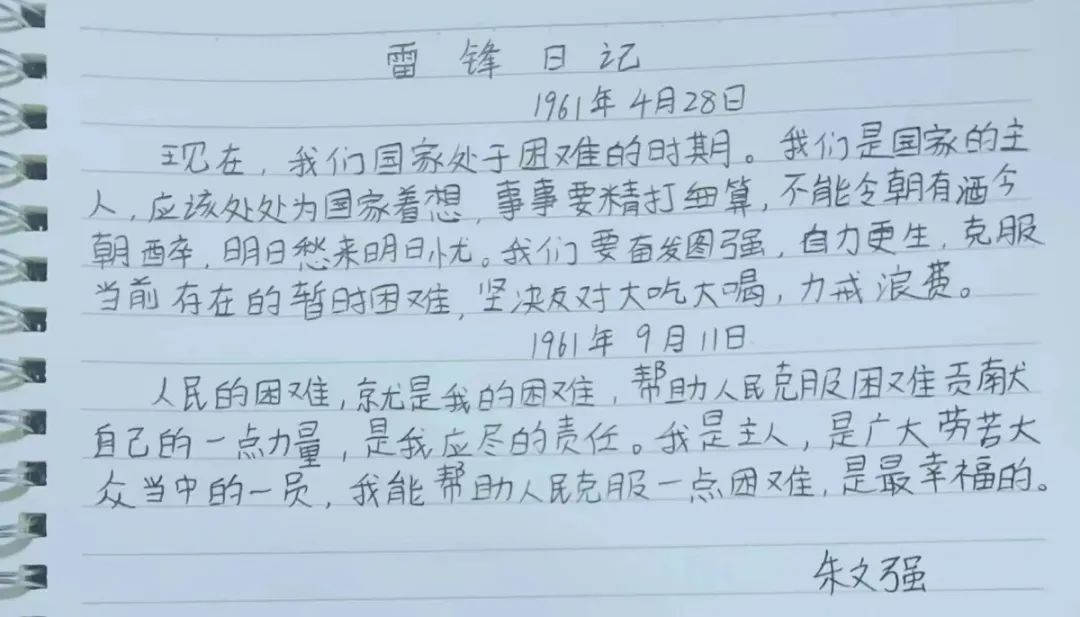 雷锋日记
1961年4月28日
现在，我们国家处于困难的时期。我们是国家的主
人，应该处处为国家着想，事事要精打细算，不能今朝有酒今
朝醉，明日愁来明日忧。我们要奋发图强，自力更生，克服
当前存在的暂时困难，坚决反对大吃大喝，力戒浪费。
1961年9月11日
人民的困难，就是我的困难，帮助人民克服困难贡献
自己的一点力量，是我应尽的责任。我是主人，是广大劳苦大
众当中的一员，我能帮助人民克服一点困难，是最幸福的。
朱文强